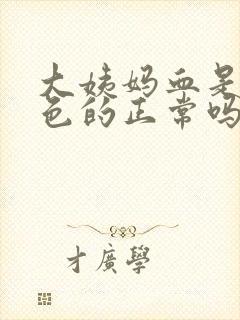 大姨妈血是
色的正常吗
才廣學